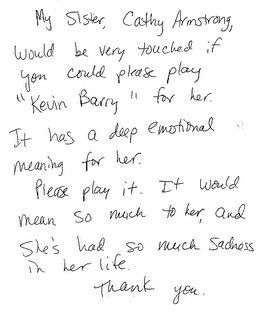 My Sister, Cathy Armstrong,
would be very touched if
you could please play
"Kevin Barry" for her.
It has a deep emotional
meaning for her.
Please play it. It would
mean so much to her, and
She's had so much Sadness
in her life.
Thank you.